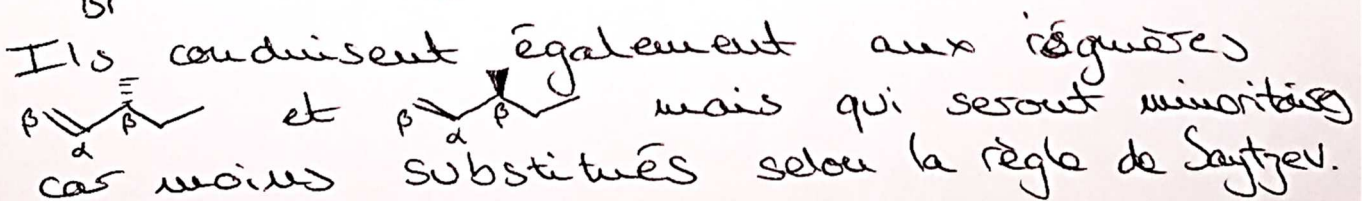 Br
Ils conduisent également aux régioisomères
β α β et β α β mais qui seront minoritaires
car moins substitués selon la règle de Saytzev.